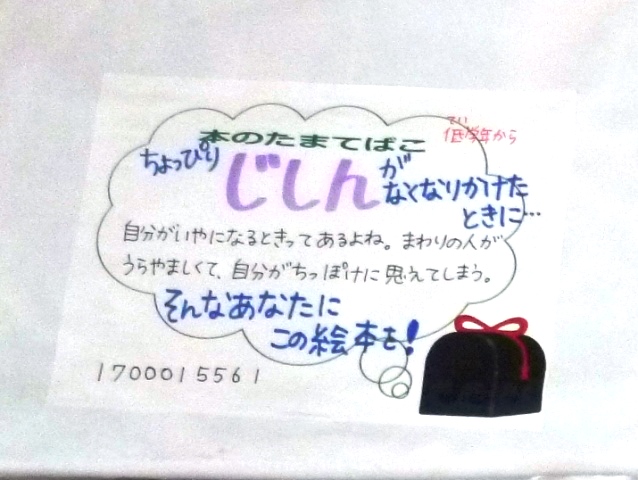 本のたまてばこ
てい
低学年から
ちょっぴり
じしんが
なくなりかけた
ときに…
自分がいやになるときってあるよね。まわりの人が
うらやましくて、自分がちっぽけに思えてしまう。
そんなあなたに
この絵本を!
1700015561